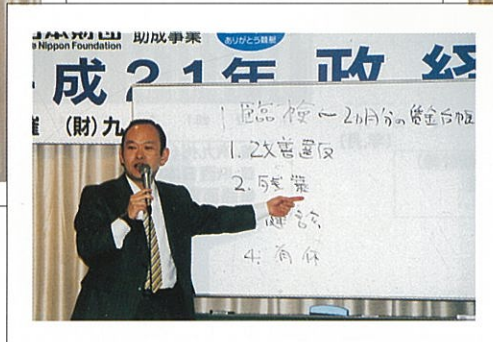 日本財団 助成事業
Nippon Foundation
ありがとう
平成21年 政経
(財)九
臨検～2カ月分の賃金台帳
1. 改善違反
2. 残業
健診
4. 有休